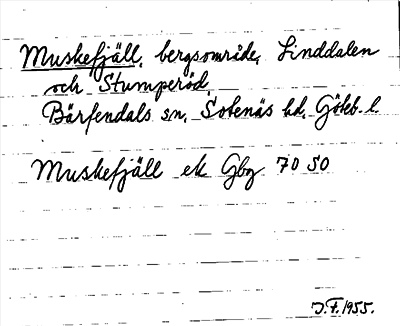 Muskefjäll, bergsområde, Linddalen
och Stumperöd
Bärfendals sn, Sotenäs hd, Göteb. l.
Muskefjäll ek Gbg 70 SO
J.F. 1955.